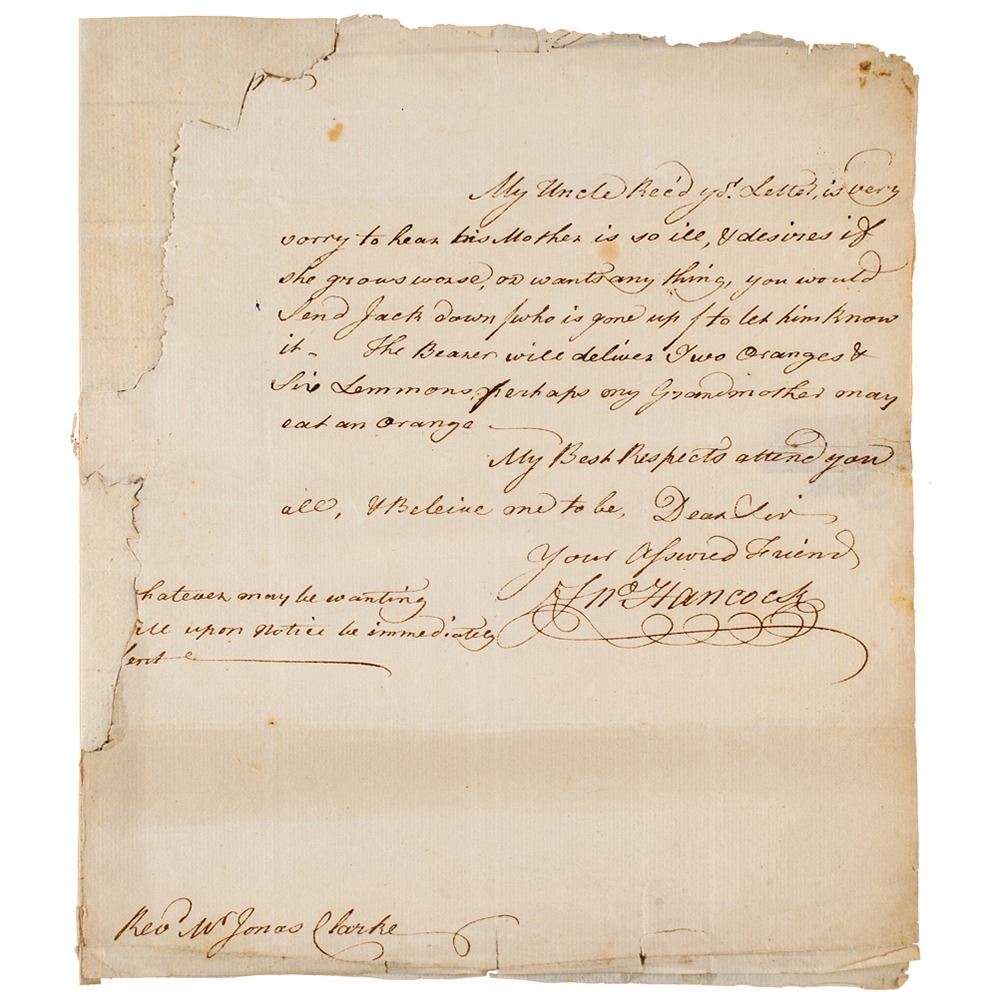 My Uncle Rec'd yor. Letter, is very
sorry to hear his Mother is so ill, & desires if
she grows worse, or wants any thing, you would
Send Jack down (who is gone up) to let him know
it - The Bearer will deliver Two Oranges &
Six Lemmons, perhaps my Grandmother may
eat an Orange
My Best Respects attend you
all, & Beleive me to be, Dear Sir
Your Assured Friend
Jno. Hancock
hatever may be wanting
ill upon Notice be immediately
sent
Revd. Mr Jonas Clarke